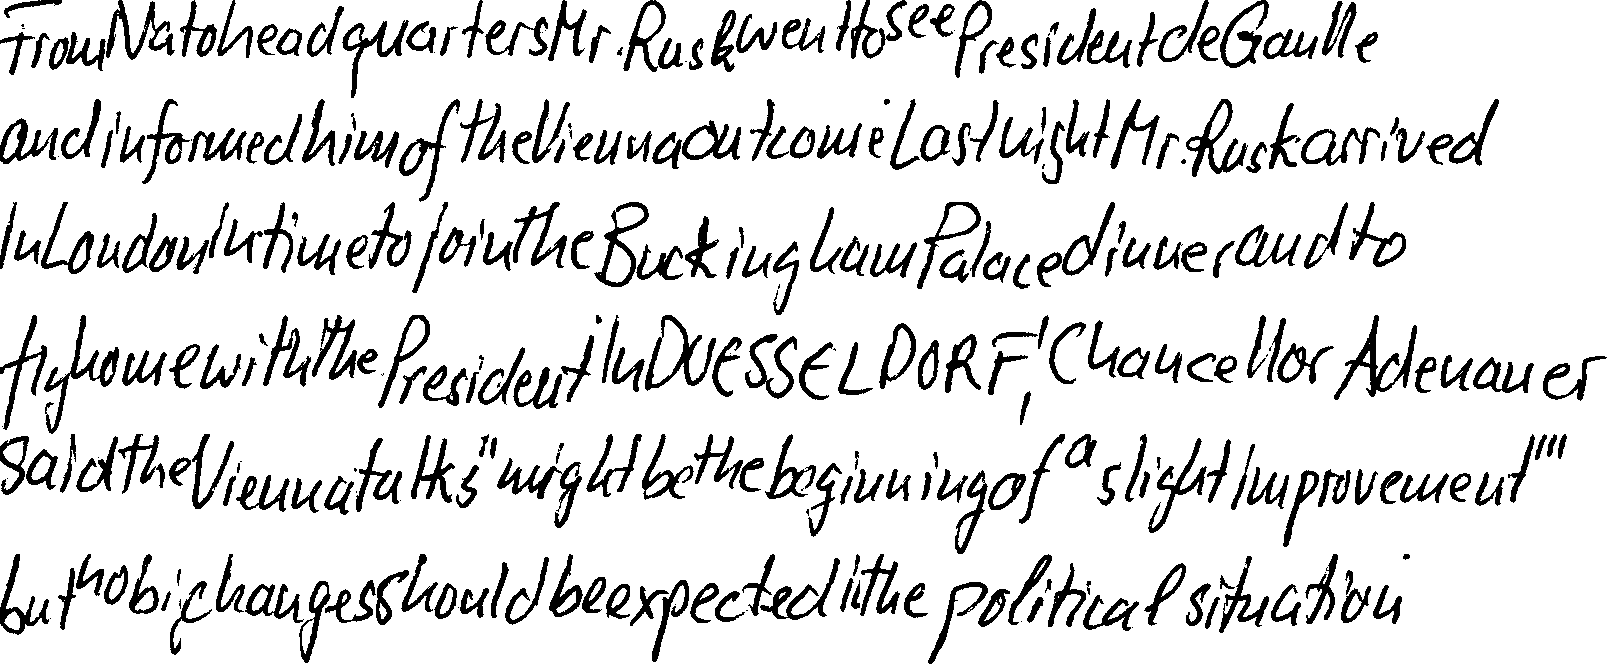 From Nato headquarters Mr. Rusk went to see President de Gaulle
and informed him of the Vienna outcome. Last night Mr. Rusk arrived
in London in time to join the Buckingham Palace dinner and to
fly home with the President. In DUESSELDORF, Chancellor Adenauer
said the Vienna talks "might be the beginning of a slight improvement"
but no big changes should be expected in the political situation